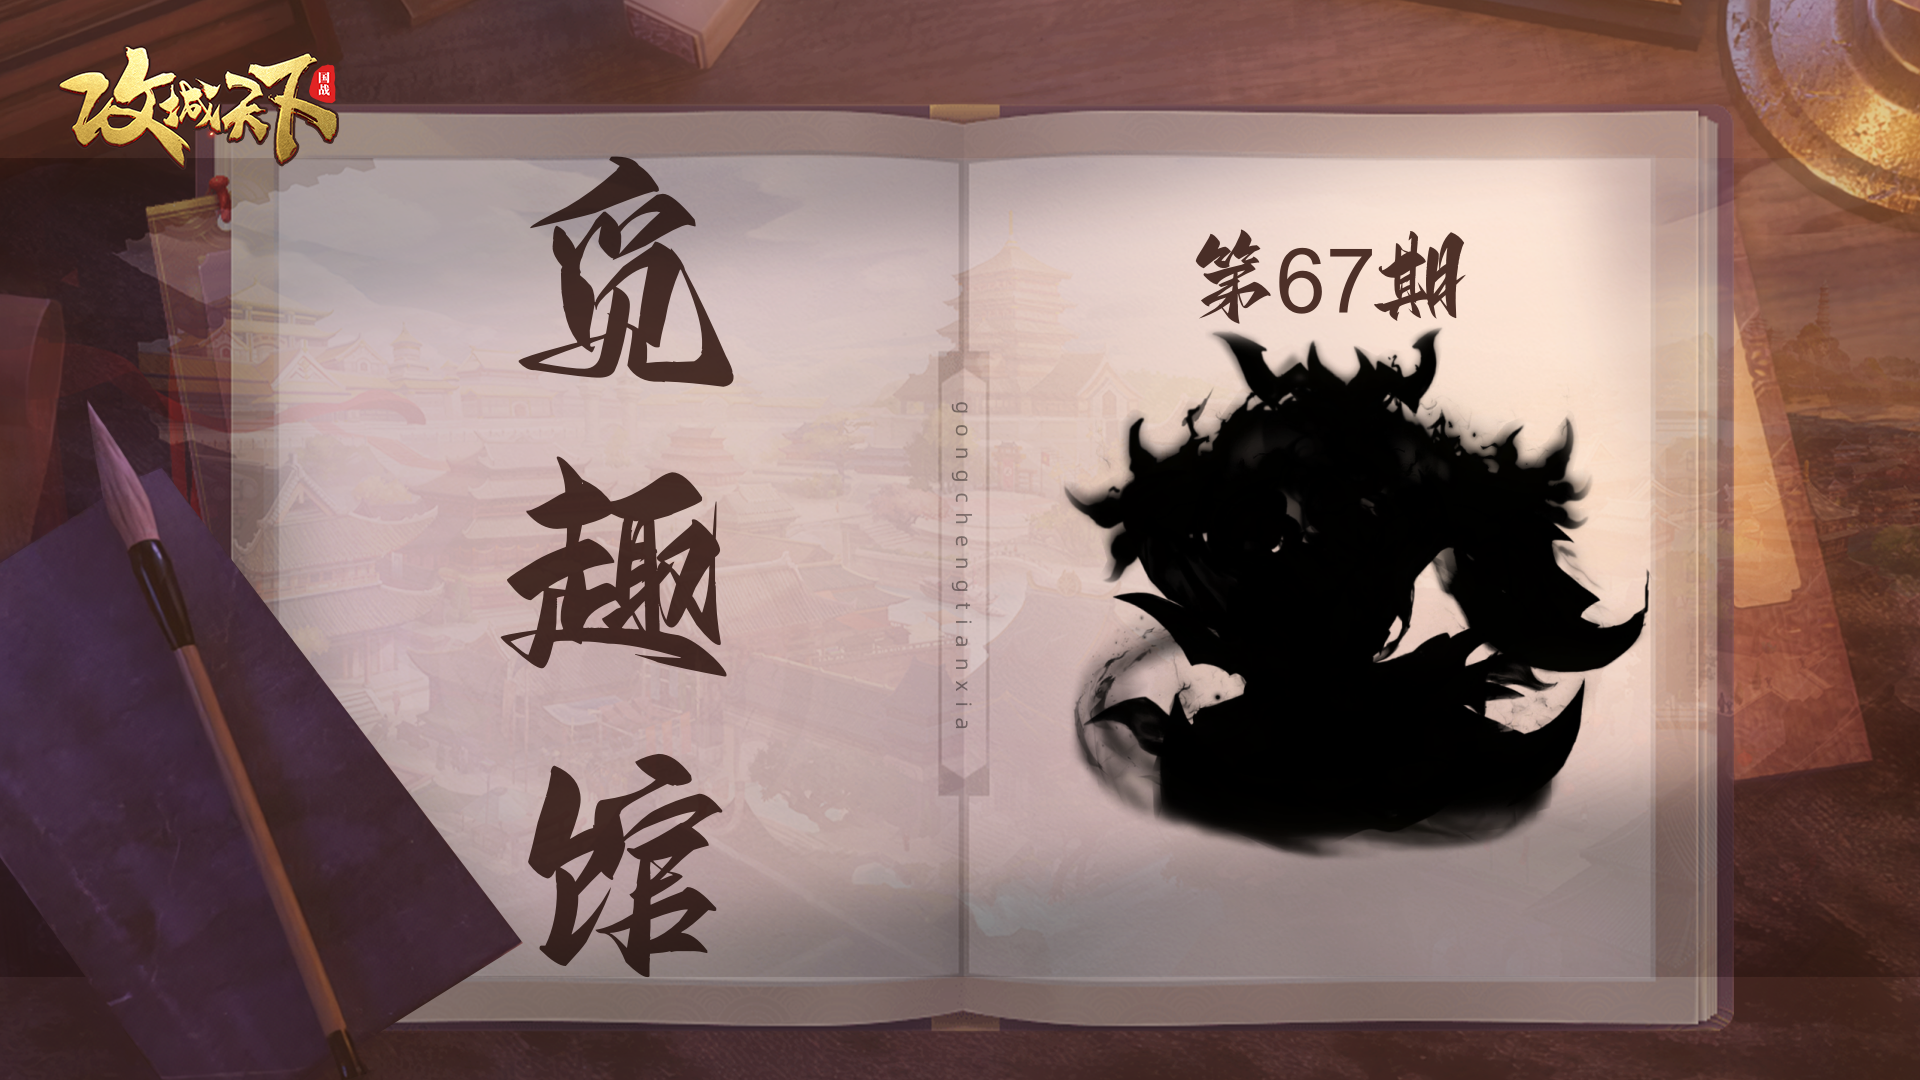 攻城天下
国战
觅趣馆
gongchengtianxia
第67期